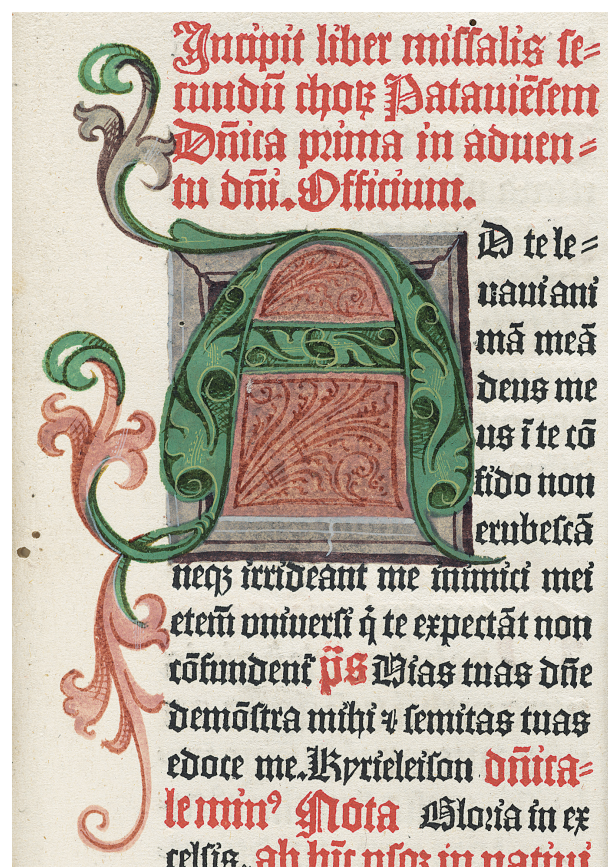 Incipit liber missalis se⸗
cundū choꝝ Patauiēsem
Dñica prima in aduen⸗
tu dñi. Officium.
AD te le⸗
uaui ani
mā meā
deus me
us ī te cō
fido non
erubescā
neqꝫ irrideant me inimici mei
etem̄ vniuersi q̄ te expectāt non
cōfundent᷑ p̄s Uias tuas dñe
demōstra mihi ⁊ semitas tuas
edoce me. Kyrieleison dñica⸗
le minꝰ Nota Gloria in ex
celsis. ab hīc vsqꝫ in natiui